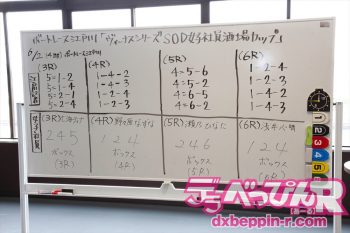 ボートレース江戸川「ヴィーナスシリーズSOD女子社員酒場カップ」
6/2(4日目) ボートレース江戸川
(3R)
5=1-2
5=1-4
5=2-1
5=2-4
(4R)
1-4-2
1-4-3
1-2-4
1-2-3
(5R)
4=5-6
4=5-2
4=2-6
4=2-5
(6R)
1-2-4
1-2-3
1-4-2
1-4-3
(3R)
245
ボックス
(3R)
(4R)
124
ボックス
(4R)
(5R)
246
ボックス
(5R)
(6R)
124
ボックス
(6R)
1
2
3
4
5
6
デラべっぴんR
dxbeppin-r.com